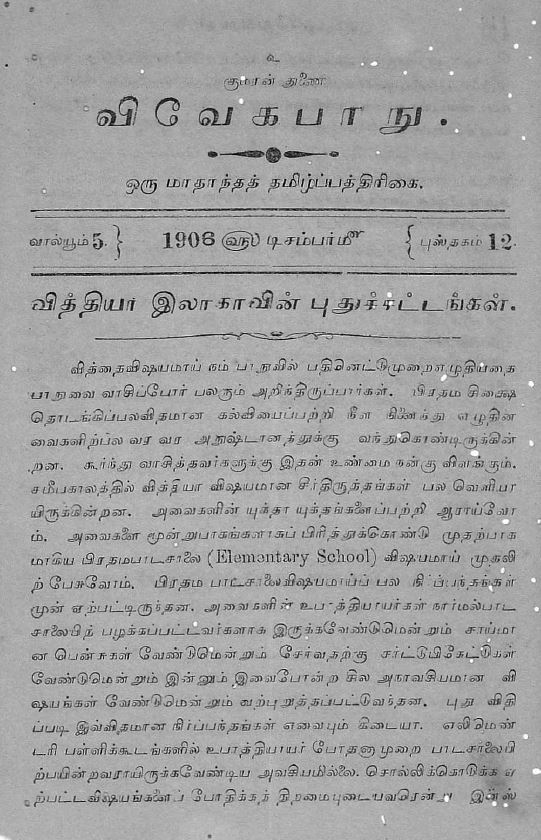 உ
குமரன் துணை
விவேகபாநு.
ஒரு மாதாந்தத் தமிழ்ப்பத்திரிகை.
வால்யூம் 5. } 1906 ௵ டிசம்பர்௴ { புஸ்தகம் 12.
வித்தியா இலாகாவின் புதுச்சட்டங்கள்.
வித்தைவிஷயமாய் நம் பாநுவில் பதினெட்டுமுறைஎழுதியதை
பாநுவை வாசிப்போர் பலரும் அறிந்திருப்பார்கள். பிரதம சிக்ஷை
தொடங்கிப்பலவிதமான கல்வியைப்பற்றி நீள நினைத்து எழுதின
வைகளிற்பல வர வர அநுஷ்டானத்துக்கு வந்துகொண்டிருக்கின்
றன. கூர்ந்து வாசித்தவர்களுக்கு இதன் உண்மை நன்கு விளங்கும்.
சமீபகாலத்தில் வித்தியா விஷயமான சீர்திருத்தங்கள் பல வெளியா
யிருக்கின்றன. அவைகளின் யுக்தா யுக்தங்களைப்பற்றி ஆராய்வோ
ம். அவைகளை மூன்றுபாகங்களாகப் பிரித்துக்கொண்டு முதற்பாக
மாகிய பிரதமபாடசாலை (Elementary School) விஷயமாய் முதலி
ற் பேசுவோம். பிரதம பாடசாலைவிஷயமாய்ப் பல நிர்ப்பந்தங்கள்
முன் ஏற்பட்டிருந்தன. அவைகளின் உபாத்தியாயர்கள் நார்மல்பாட
சாலையிற் பழக்கப்பட்டவர்களாக இருக்கவேண்டுமென்றும் சாய்மா
ன பென்சுகள் வேண்டுமென்றும் சேர்வதற்கு சர்ட்டுபிகேட்டுகள்
வேண்டுமென்றும் இன்னும் இவைபோன்ற சில அநாவசியமான வி
ஷயங்கள் வேண்டுமென்றும் வற்புறுத்தப்பட்டுவந்தன. புது விதி
ப்படி இவ்விதமான நிர்ப்பந்தங்கள் எவையும் கிடையா. எலிமெண்
டரி பள்ளிக்கூடங்களில் உபாத்தியாயர் போதனாமுறை பாடசாலையி
ற்பயின்றவராயிருக்கவேண்டிய அவசியமில்லை. சொல்லிக்கொடுக்க ஏ
ற்பட்டவிஷயங்களைப் போதிக்கத் திறமையுடையவரென்று இன்ஸ்